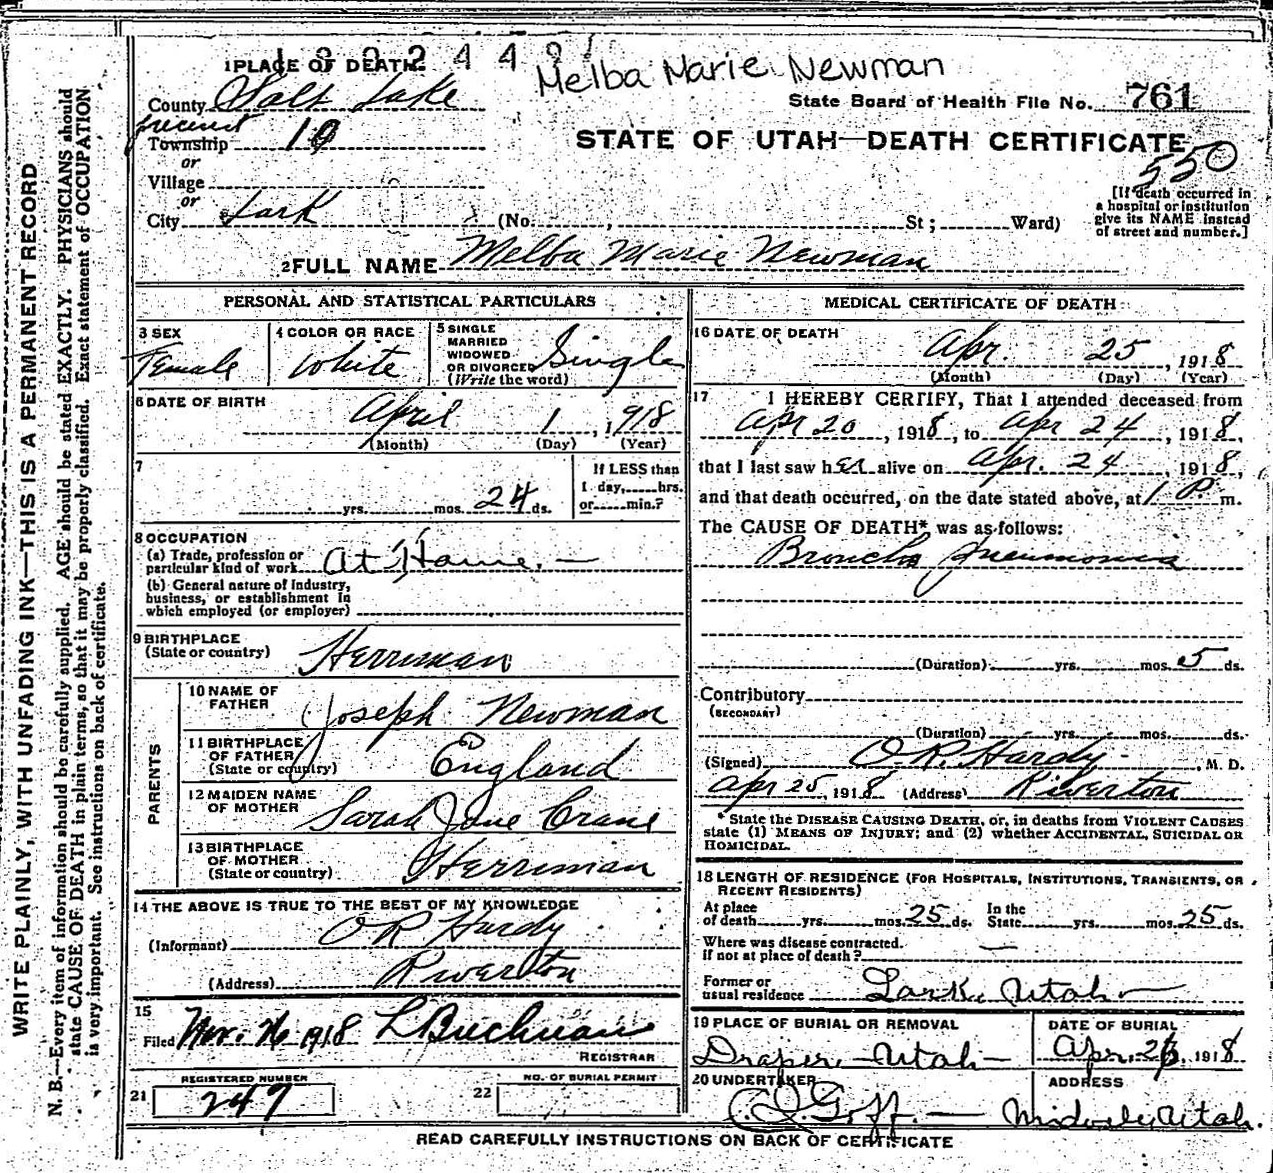 1302449
Melba Marie Newman
1 PLACE OF DEATH.
County Salt Lake
State Board of Health File No. 761
precinct
Township 10
STATE OF UTAH—DEATH CERTIFICATE
550
or
Village
or
City Lark (No. , St ; Ward)
[If death occurred in
a hospital or institution
give its NAME instead
of street and number.]
2 FULL NAME Melba Marie Newman
PERSONAL AND STATISTICAL PARTICULARS
3 SEX
Female
4 COLOR OR RACE
White
5 SINGLE
MARRIED
WIDOWED
OR DIVORCED
(Write the word)
Single
6 DATE OF BIRTH
April 1, 1918
(Month) (Day) (Year)
7
yrs. mos. 24 ds.
If LESS than
1 day, hrs.
or min.?
8 OCCUPATION
(a) Trade, profession or
particular kind of work At Home. —
(b) General nature of Industry,
business, or establishment in
which employed (or employer)
9 BIRTHPLACE
(State or country) Herriman
PARENTS
10 NAME OF
FATHER Joseph Newman
11 BIRTHPLACE
OF FATHER
(State or country) England
12 MAIDEN NAME
OF MOTHER Sarah Jane Crane
13 BIRTHPLACE
OF MOTHER
(State or country) Herriman
14 THE ABOVE IS TRUE TO THE BEST OF MY KNOWLEDGE
(Informant) O R Hardy
(Address) Riverton
15
Filed Nov. 26 1918 L Buchman
REGISTRAR
21 REGISTERED NUMBER
247
22 NO. OF BURIAL PERMIT
MEDICAL CERTIFICATE OF DEATH
16 DATE OF DEATH
Apr. 25, 1918
(Month) (Day) (Year)
17 I HEREBY CERTIFY, That I attended deceased from
Apr 20, 1918, to Apr 24, 1918,
that I last saw her alive on Apr. 24, 1918,
and that death occurred, on the date stated above, at 1 P. m.
The CAUSE OF DEATH* was as follows:
Broncho Pneumonia
(Duration) yrs. mos. 5 ds.
Contributory
(SECONDARY)
(Duration) yrs. mos. ds.
(Signed) O. R. Hardy, M. D.
Apr 25, 1918 (Address) Riverton
* State the DISEASE CAUSING DEATH, or, in deaths from VIOLENT CAUSES
state (1) MEANS OF INJURY; and (2) whether ACCIDENTAL, SUICIDAL OR
HOMICIDAL.
18 LENGTH OF RESIDENCE (FOR HOSPITALS, INSTITUTIONS, TRANSIENTS, OR
RECENT RESIDENTS)
At place
of death yrs. mos. 25 ds.
In the
State yrs. mos. 25 ds.
Where was disease contracted.
If not at place of death? —
Former or
usual residence Lark, Utah —
19 PLACE OF BURIAL OR REMOVAL
Draper — Utah —
DATE OF BURIAL
Apr. 26, 1918
20 UNDERTAKER
Goff. —
ADDRESS
Midvale, Utah.
READ CAREFULLY INSTRUCTIONS ON BACK OF CERTIFICATE
WRITE PLAINLY, WITH UNFADING INK—THIS IS A PERMANENT RECORD
N. B.—Every item of information should be carefully supplied. AGE should be stated EXACTLY. PHYSICIANS should
state CAUSE OF DEATH in plain terms, so that it may be properly classified. Exact statement of OCCUPATION
is very important. See instructions on back of certificate.